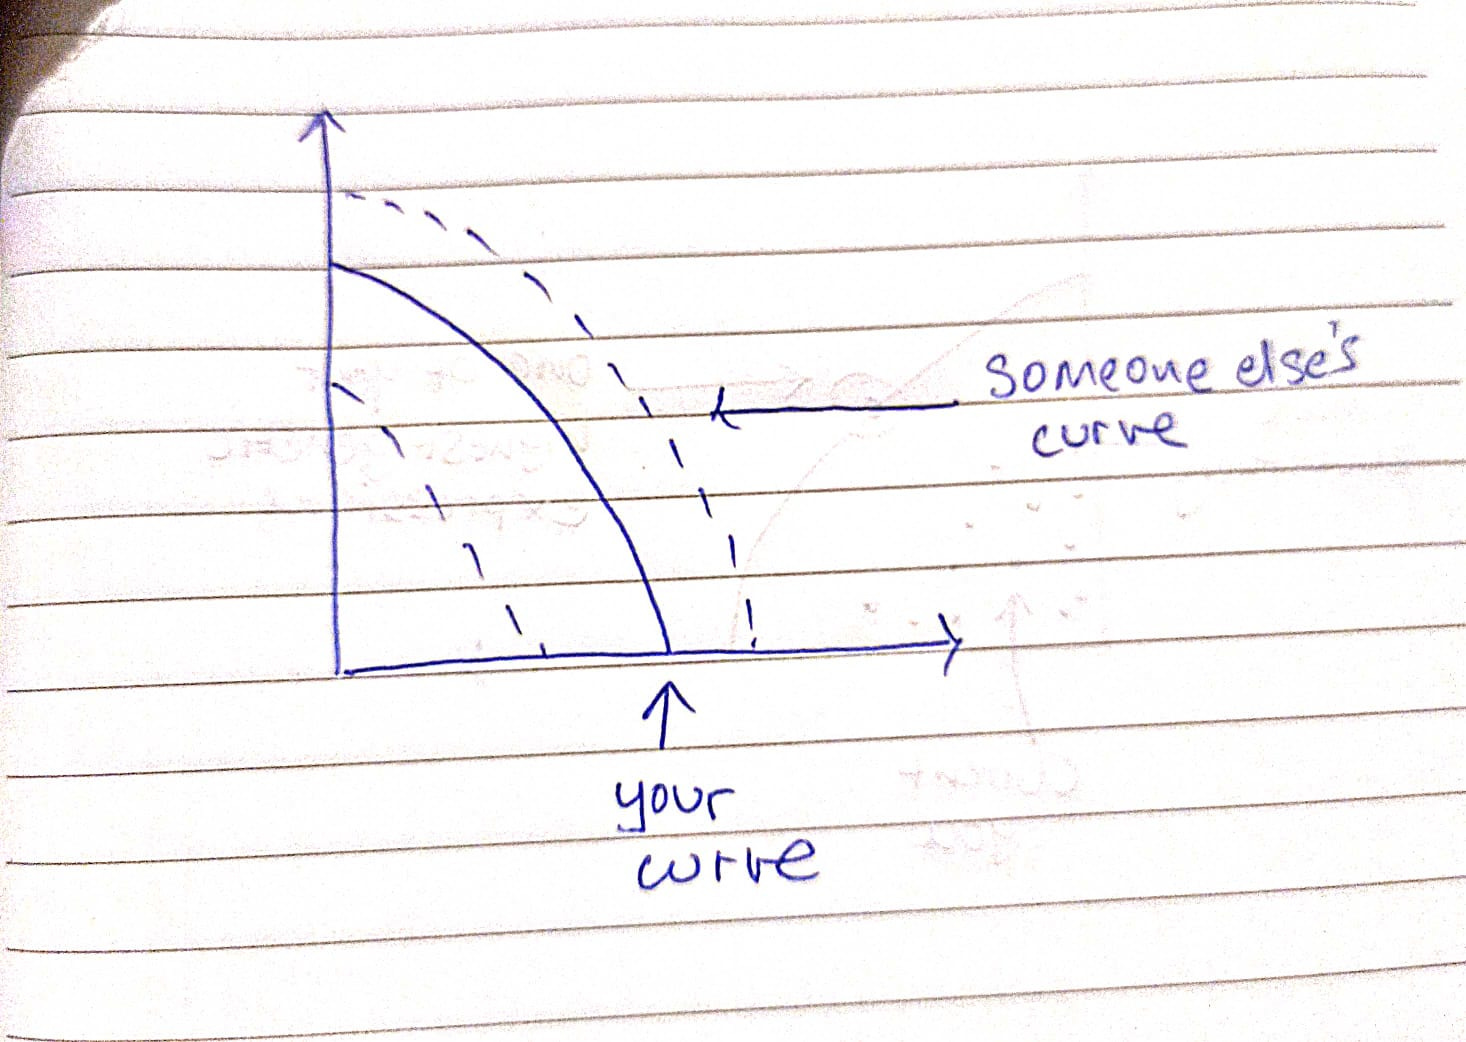 someone else's
curve
your
curve